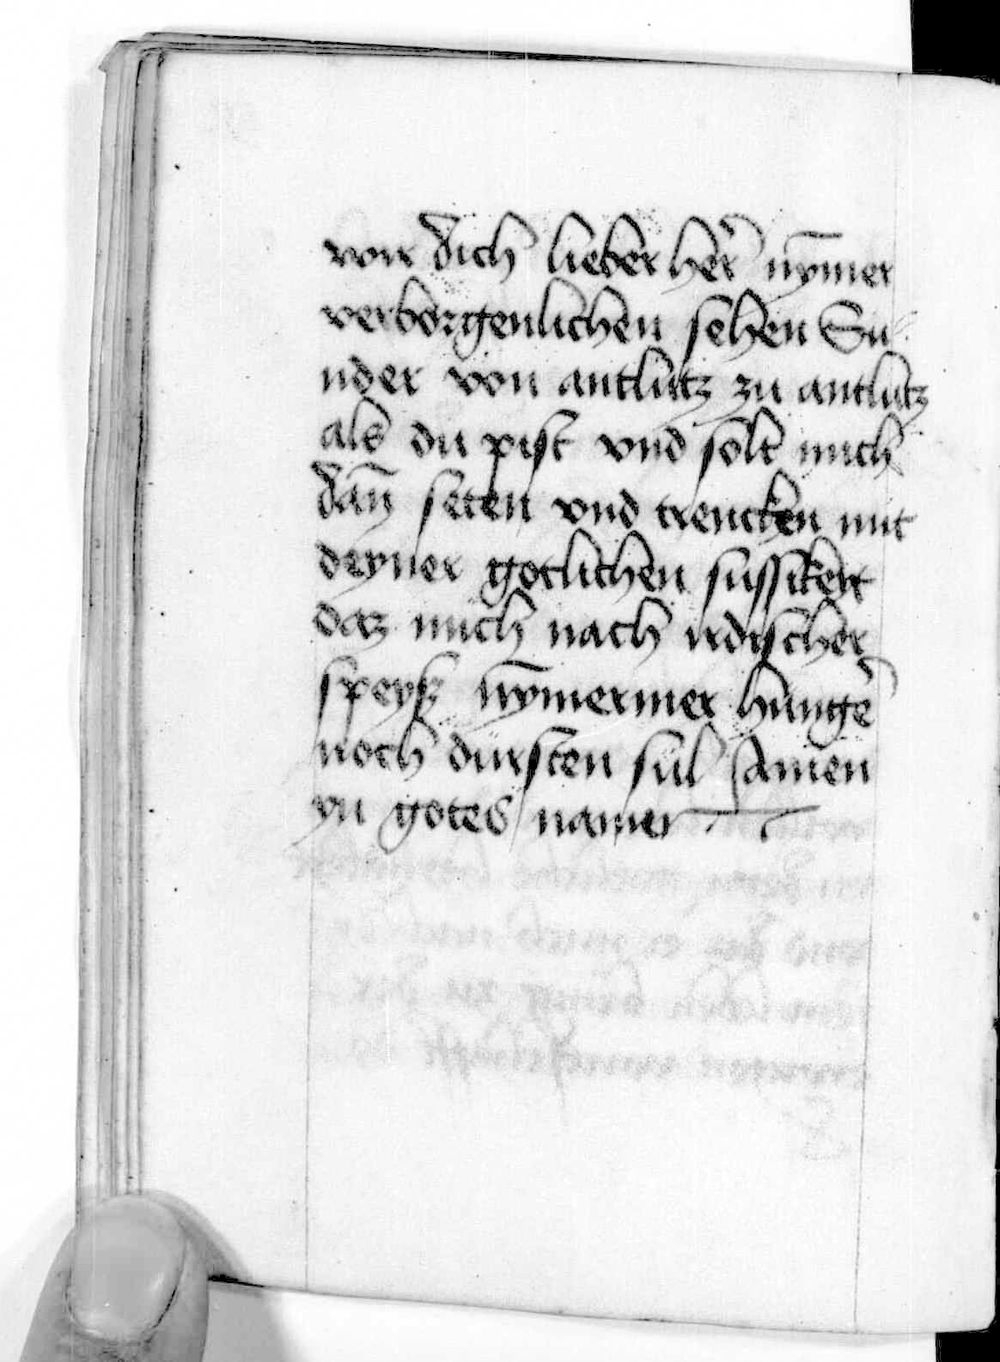 wir dich lieber her̃ nȳmer
verborgenlichen sehen Su
nder von antlutz zu antlutz
als du pist vnd solt mich
dañ seten vnd trencken mit
deyner gotlichen sussikeit
daz mich nach irdischer
speyß nȳmermer hunge˜
noch dursten sul Amen
yn gotes namen